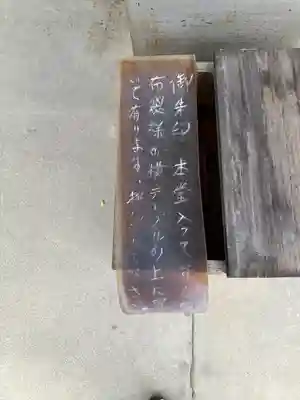 御朱印 本堂入ってす
布製様の横テーブルの上に
いて有ります、